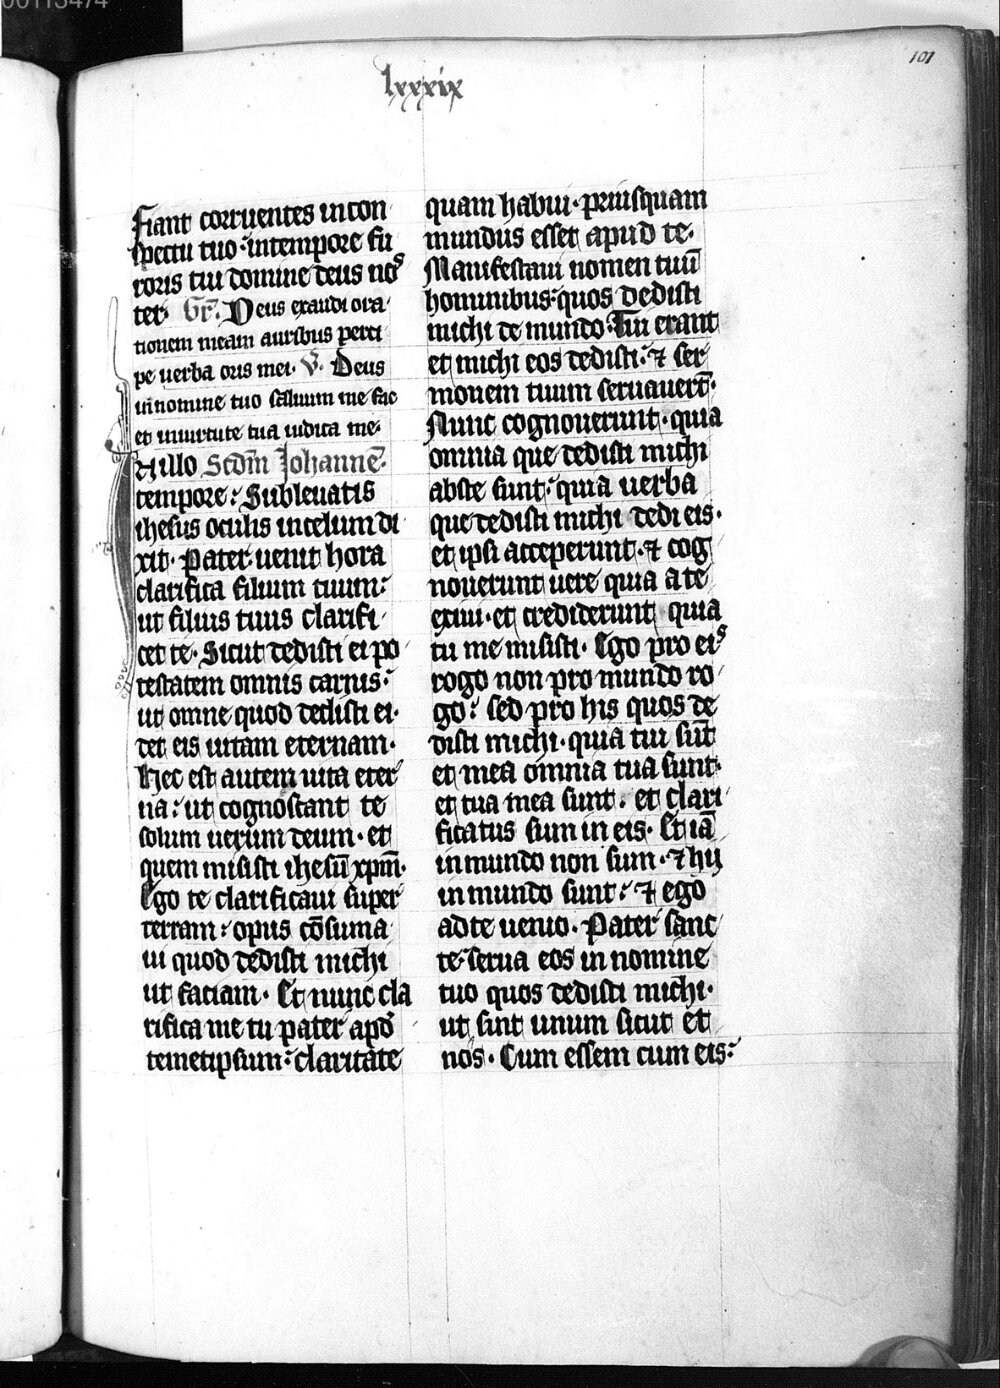 00113474
101
lxxxix
Fiant corruentes in con
spectu tuo : in tempore fu
roris tui domine deus nos
ter. Gr̄. Deus exaudi ora
tionem meam auribus perci
pe uerba oris mei. V. Deus
in nomine tuo saluum me fac
et in uirtute tua iudica me.
In illo Scdm̄ Johannē.
tempore : Subleuatis
ihesus oculis in celum di
xit. Pater uenit hora
clarifica filium tuum :
ut filius tuus clarifi
cet te. Sicut dedisti ei po
testatem omnis carnis :
ut omne quod dedisti ei.
det eis uitam eternam.
Hec est autem uita eter
na : ut cognoscant te
solum uerum deum. et
quem misisti ihesū xpm̄.
Ego te clarificaui super
terram : opus cōsuma
ui quod dedisti michi
ut faciam. Et nunc cla
rifica me tu pater apd̄
temetipsum : claritate
quam habui. priusquam
mundus esset apud te.
Manifestaui nomen tuū
hominibus : quos dedisti
michi de mundo. Tui erant
et michi eos dedisti : ⁊ ser
monem tuum seruauerūt.
Nunc cognouerunt. quia
omnia que dedisti michi
abste sunt : quia uerba
que dedisti michi dedi eis.
et ipsi acceperunt. ⁊ cog
nouerunt uere quia a te
exiui. et crediderunt quia
tu me misisti. Ego pro eis
rogo non pro mundo ro
go : sed pro his quos de
disti michi. quia tui sūt
et mea omnia tua sunt.
et tua mea sunt. et clari
ficatus sum in eis. Et iā
in mundo non sum. ⁊ hij
in mundo sunt : ⁊ ego
ad te uenio. Pater sanc
te serua eos in nomine
tuo quos dedisti michi.
ut sint unum sicut et
nos. Cum essem cum eis :